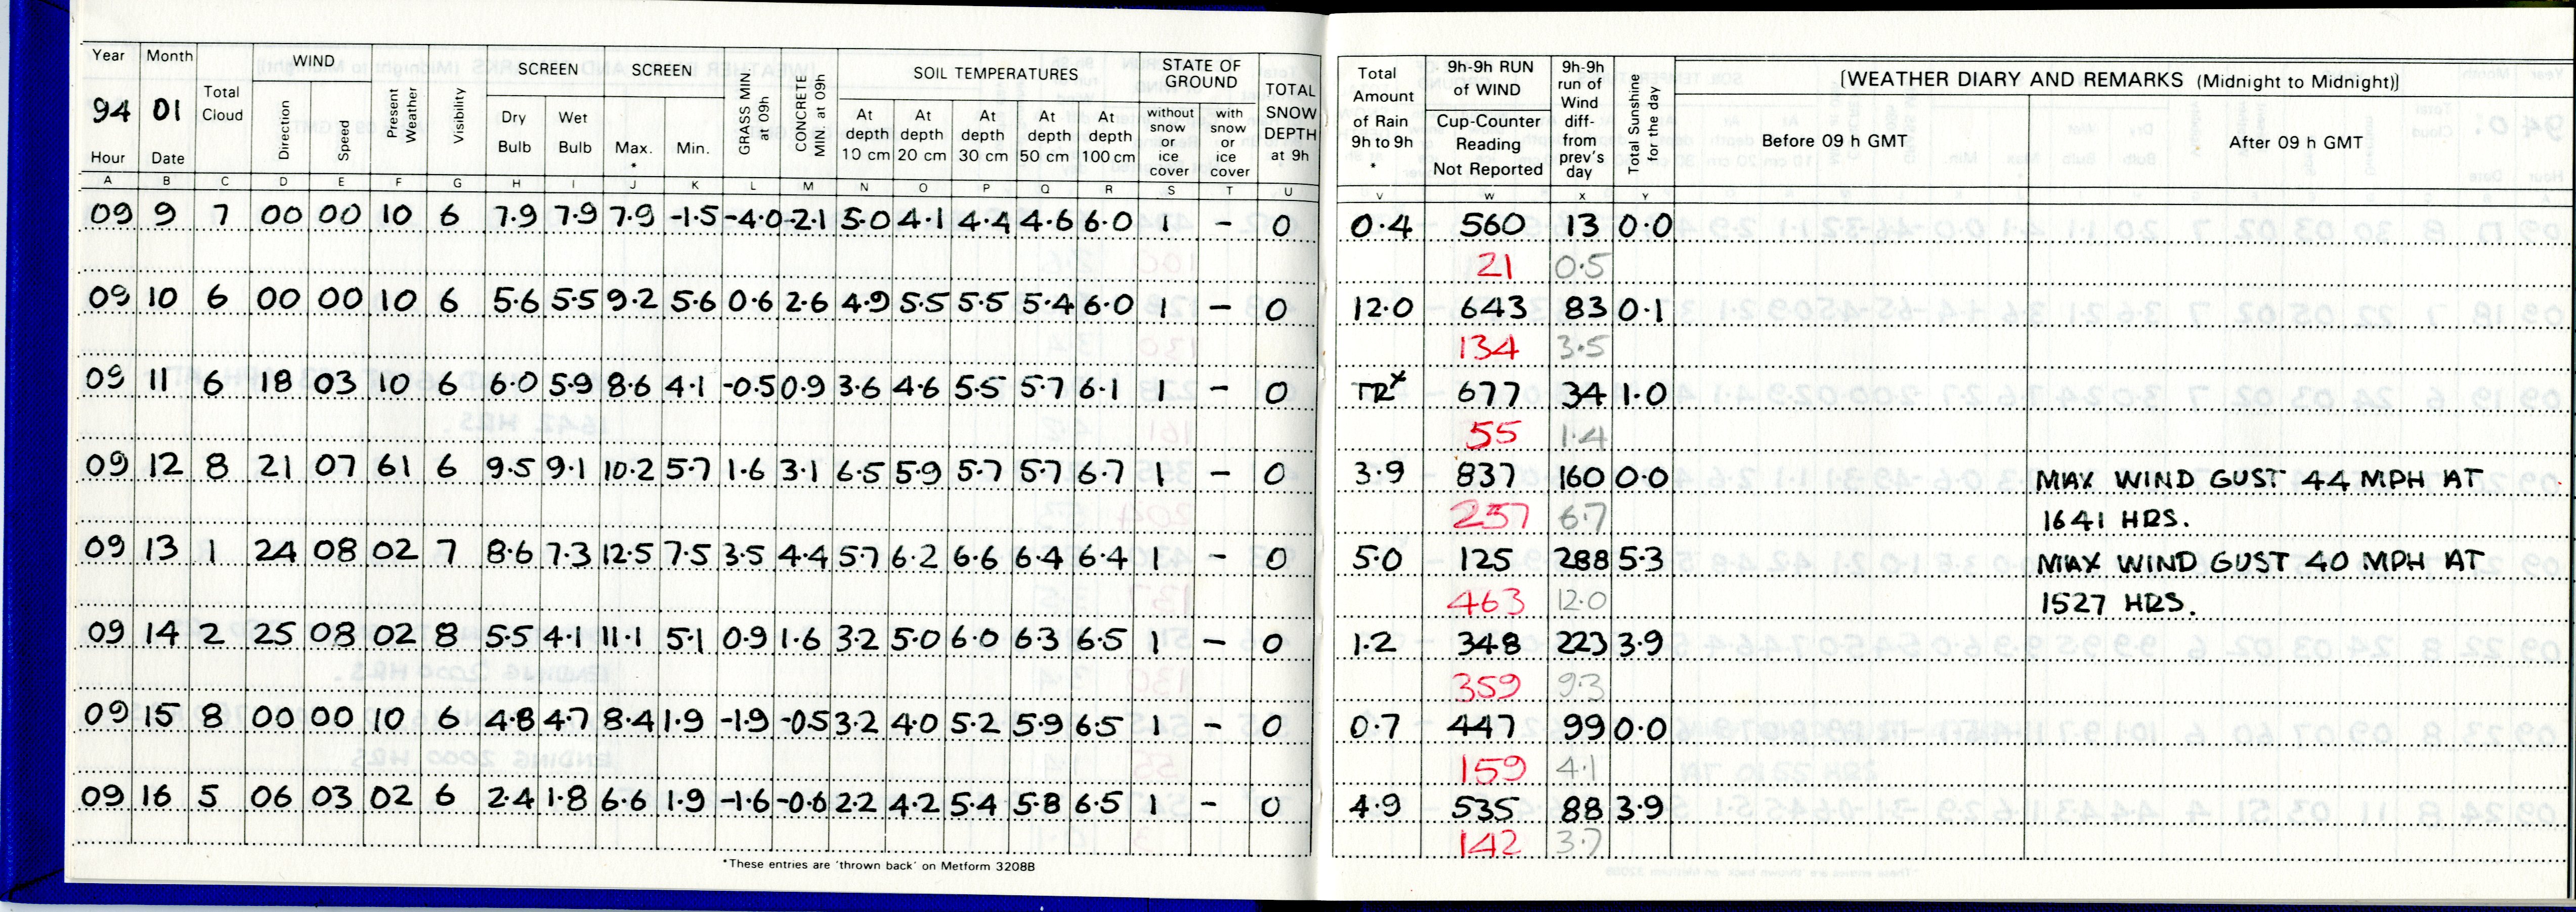 Year Month Total Cloud WIND Present Weather Visibility SCREEN SCREEN GRASS MIN. at 09h CONCRETE MIN. at 09h SOIL TEMPERATURES STATE OF GROUND TOTAL SNOW DEPTH at 9h Total Amount of Rain 9h to 9h * 9h-9h RUN of WIND Cup-Counter Reading Not Reported 9h-9h run of Wind diff- from prev's day Total Sunshine for the day [WEATHER DIARY AND REMARKS (Midnight to Midnight)]
94 01 Direction Speed Dry Bulb Wet Bulb Max. * Min. At depth 10 cm At depth 20 cm At depth 30 cm At depth 50 cm At depth 100 cm without snow or ice cover with snow or ice cover Before 09 h GMT After 09 h GMT
Hour Date
A B C D E F G H I J K L M N O P Q R S T U V W X Y
09 9 7 00 00 10 6 7.9 7.9 7.9 -1.5 -4.0 -2.1 5.0 4.1 4.4 4.6 6.0 1 - 0 0.4 560 13 0.0
21 0.5
09 10 6 00 00 10 6 5.6 5.5 9.2 5.6 0.6 2.6 4.9 5.5 5.5 5.4 6.0 1 - 0 12.0 643 83 0.1
134 3.5
09 11 6 18 03 10 6 6.0 5.9 8.6 4.1 -0.5 0.9 3.6 4.6 5.5 5.7 6.1 1 - 0 TR x 677 34 1.0
55 1.4
09 12 8 21 07 61 6 9.5 9.1 10.2 5.7 1.6 3.1 6.5 5.9 5.7 5.7 6.7 1 - 0 3.9 837 160 0.0 MAX WIND GUST 44 MPH AT
257 6.7 1641 HRS.
09 13 1 24 08 02 7 8.6 7.3 12.5 7.5 3.5 4.4 5.7 6.2 6.6 6.4 6.4 1 - 0 5.0 125 288 5.3 MAX WIND GUST 40 MPH AT
463 12.0 1527 HRS.
09 14 2 25 08 02 8 5.5 4.1 11.1 5.1 0.9 1.6 3.2 5.0 6.0 6.3 6.5 1 - 0 1.2 348 223 3.9
359 9.3
09 15 8 00 00 10 6 4.8 4.7 8.4 1.9 -1.9 -0.5 3.2 4.0 5.2 5.9 6.5 1 - 0 0.7 447 99 0.0
159 4.1
09 16 5 06 03 02 6 2.4 1.8 6.6 1.9 -1.6 -0.6 2.2 4.2 5.4 5.8 6.5 1 - 0 4.9 535 88 3.9
142 3.7
*These entries are 'thrown back' on Metform 3208B